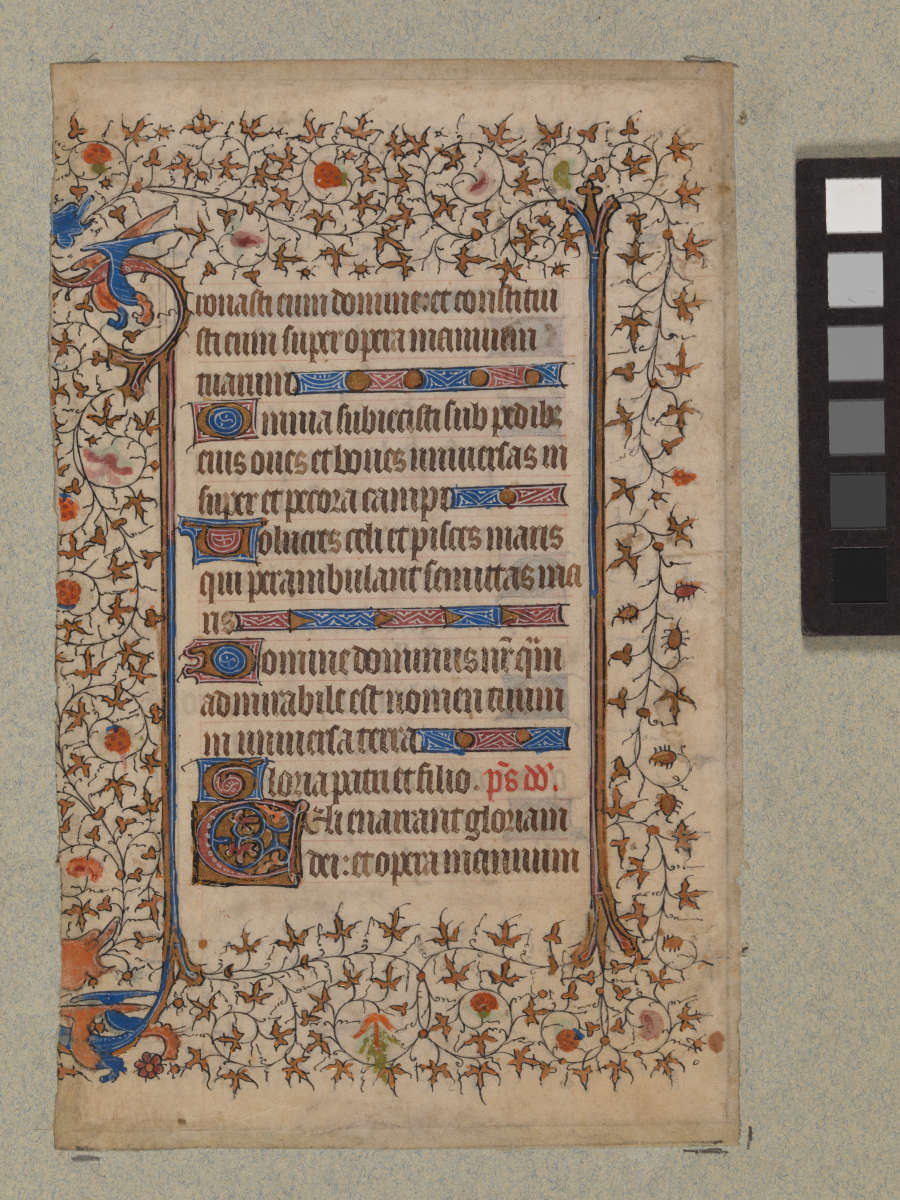 ronasti eum domine: et constitui
sti eum super opera manuum
tuarum
Omnia subiecisti sub pedibꝫ
eius oues et boues uniuersas in
super et pecora campi
Volucres celi et pisces maris
qui perambulant semittas ma
ris
Domine dominus nr̄ qm̄
admirabile est nomen tuum
in uniuersa terra
Gloria patri et filio. p̄s dd̄.
Celi enarrant gloriam
dei: et opera manuum